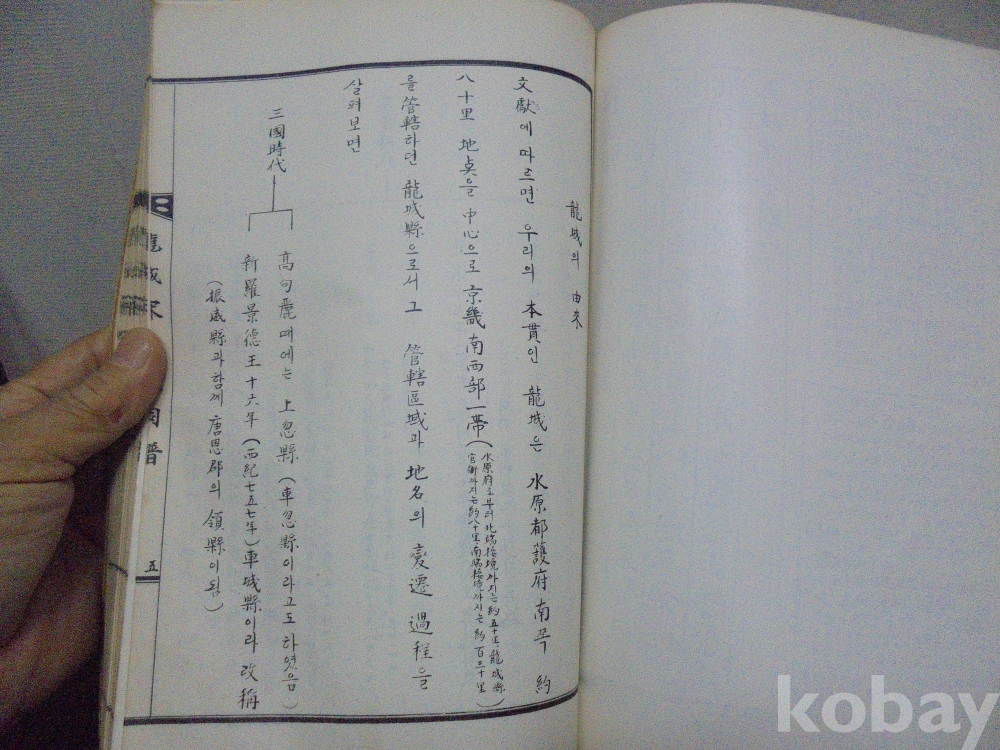 龍城의 由來
文獻에 따르면 우리의 本貫인 龍城은 水原都護府 南쪽 約
八十里 地点을 中心으로 京畿南西部一帶(水原府로부터 北端接境까지는 約五十里, 龍城縣
官衙까지는 約八十里, 南端接境까지는 約百三十里)
를 管轄하던 龍城縣으로서 그 管轄區域과 地名의 變遷 過程을
살펴보면
三國時代
高句麗때에는 上忽縣 (車忽縣이라고도 하였음)
新羅景德王十六年 (西紀七五七年) 車城縣이라 改稱
(振威縣과 함께 唐恩郡의 領縣이 됨)
龍城宋
譜
五
kobay